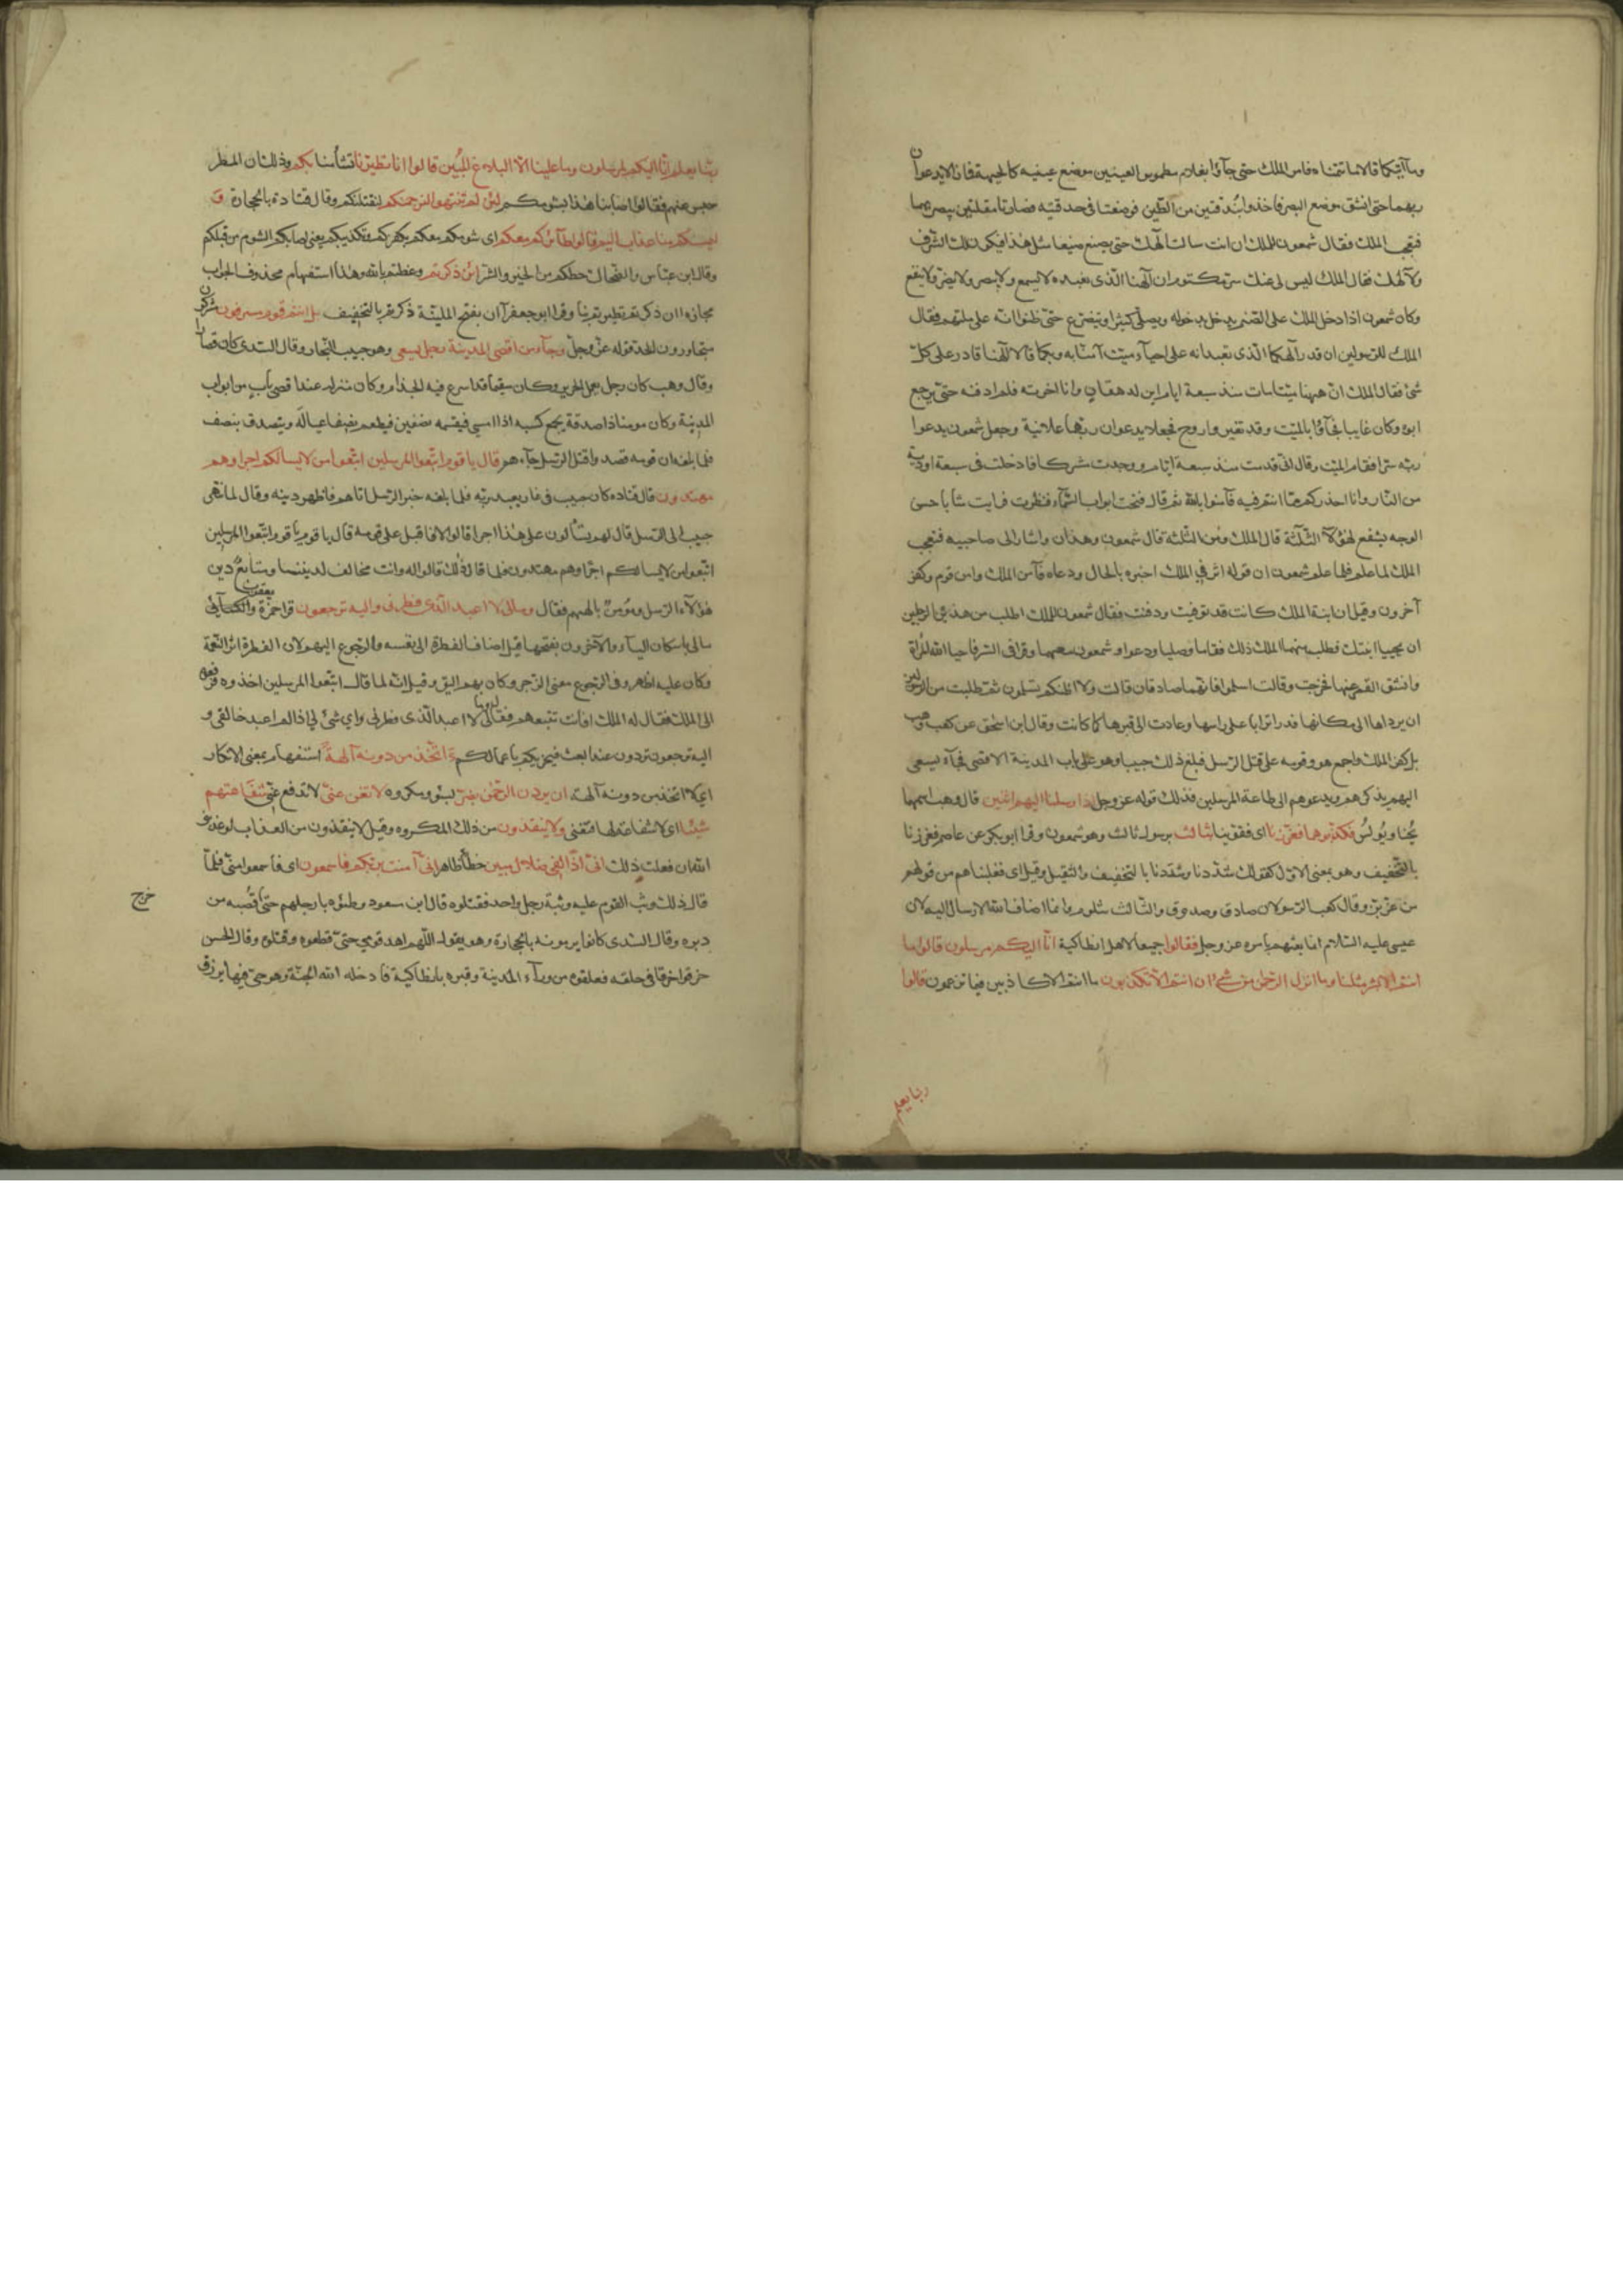 وما آيتكما قالا ما تتمناه فامر الملك حتى جاؤا بغلام مطموس العينين موضع عينيه كالجبهة فما زالا يدعوان
ربهما حتى انشق موضع البصر فاخذوا بندقتين من الطين فوضعتا فى حدقتيه فصارتا مقلتين يبصر بهما
فتعجب الملك فقال شمعون للملك ان انت سالت آلهك حتى يصنع صنيعا مثل هذا فيكون لك الشرف
ولآلهك فقال الملك ليس لى عنك سر مكتوم ان آلهنا الذى نعبده لا يسمع ولا يبصر ولا يضر ولا ينفع
وكان شمعون اذا دخل الملك على الصنم يدخل بدخوله ويصلى كثيرا ويتضرع حتى ظنوا انه على ملتهم فقال
الملك للرسولين ان قدر آلهكما الذى تعبدانه على احياء ميت آمنا به وبكما قالا آلهنا قادر على كل
شئ فقال الملك ان ههنا ميتا مات منذ سبعة ايام ابن لدهقان وانا اخرته فلم ادفنه حتى يرجع
ابوه وكان غايبا فجاؤا بالميت وقد تغير واروح فجعلا يدعوان ربهما علانية وجعل شمعون يدعوا
ربه سرا فقام الميت وقال انى قدمت منذ سبعة ايام ووجدت مشركا فادخلت فى سبعة اودية
من النار وانا احذركم مما انتم فيه فآمنوا بالله ثم قال فتحت ابواب السماء فنظرت فرايت شابا حسن
الوجه يشفع لهؤلآ الثلثة قال الملك ومن الثلثة قال شمعون وهذان واشار الى صاحبيه فتعجب
الملك لما علم فلما علم شمعون ان قوله اثر فى الملك اخبره بالحال ودعاه فآمن الملك وامن قوم وكفر
آخرون وقيل ان ابنة الملك كانت قد توفيت ودفنت فقال شمعون للملك اطلب من هذين الرجلين
ان يحييا ابنتك فطلب منهما الملك ذلك فقاما وصليا ودعوا وشمعون معهما وقرا فى السر فاحيا الله المرأة
وانشق القبر عنها فخرجت وقالت اسلموا فانهما صادقان قالت ولا اظنكم تسلمون ثم طلبت من الرسولين
ان يرداها الى مكانها فذرا ترابا على راسها وعادت الى قبرها كما كانت وقال ابن اسحق عن كعب ووهب
بل كفر الملك واجمع هو وقومه على قتل الرسل فبلغ ذلك حبيبا وهو على باب المدينة الاقصى فجآء يسعى
اليهم يذكرهم ويدعوهم الى طاعة المرسلين فذلك قوله عز وجل اذ ارسلنا اليهم اثنين قال وهب اسمهما
يحنا ويولس فكذبوهما فعززنا اى فقوينا بثالث برسول ثالث وهو شمعون وقرا ابو بكر عن عاصم فعززنا
بالتخفيف وهو بمعنى الاول كقولك شددنا وشددنا بالتخفيف والتثقيل وقيل اى فغلبناهم من قولهم
من عز بز وقال كعب الرسولان صادق وصدوق والثالث شلوم وانما اضاف الله الارسال اليه لان
عيسى عليه السلام انما بعثهم بامره عز وجل فقالوا جميعا لاهل انطاكية انا اليكم مرسلون قالوا ما
انتم الا بشر مثلنا وما انزل الرحمن من شئ ان انتم الا تكذبون ما انتم الا كاذبين فيما تزعمون قالوا
ربنا يعلم
ربنا يعلم انا اليكم لمرسلون وما علينا الا البلاغ المبين قالوا انا تطيرنا تشأمنا بكم وذلك ان المطر
حبس عنهم فقالوا اصابنا هذا بشومكم لئن لم تنتهوا لنرجمنكم لنقتلنكم وقال قتادة بالحجارة و
ليمسنكم منا عذاب اليم قالوا طآئركم معكم اى شومكم معكم بكفركم وتكذيبكم يعنى اصابكم الشوم من قبلكم
وقال ابن عباس والضحاك حظكم من الخير والشر ائن ذكرتم وعظتم بالله وهذا استفهام محذوف الجواب
مجازه اان ذكرتم تطيرتم بنا وقرا ابو جعفر آان بفتح الملينة ذكرتم بالتخفيف بل انتم قوم مسرفون مشركون
متجاوزون الحد قوله عز وجل وجآء من اقصى المدينة رجل يسعى وهو حبيب النجار وقال السدى كان قصارا
وقال وهب كان رجل يعمل الحرير وكان سقيما قد اسرع فيه الجذام وكان منزله عند اقصى باب من ابواب
المدينة وكان مومنا ذا صدقة يجمع كسبه اذا امسى فيقسمه نصفين فيطعم نصفا عياله ويتصدق بنصف
فلما بلغه ان قومه قصدوا قتل الرسل جآءهم قال يا قوم اتبعوا المرسلين اتبعوا من لا يسالكم اجرا وهم
مهتدون قال قتاده كان حبيب فى غار يعبد ربه فلما بلغه خبر الرسل اتاهم فاظهر دينه وقال لما انتهى
حبيب الى الرسل قال لهم تسألون على هذا اجرا قالوا لا فاقبل على قومه قال يا قوم يا قوم اتبعوا المرسلين
اتبعوا من لا يسالكم اجرا وهم مهتدون فلما قال ذلك قالوا له وانت مخالف لديننا ومتابع دين
هؤلآء الرسل ومؤمن بالههم فقال ومالى لا اعبد الذى فطرنى واليه ترجعون قرا حمزة والكسآئى ويعقوب
مالى باسكان اليآء والآخرون بفتحها قيل اضاف الفطرة الى نفسه والرجوع اليهم لان الفطرة اثر النعمة
وكان عليه اظهر وفى الرجوع معنى الزجر وكان بهم اليق وقيل انه لما قال اتبعوا المرسلين اخذوه فرفعوه
الى الملك فقال له الملك افانت تتبعهم فقال ومالى لا اعبد الذى فطرنى واى شئ لى اذا لم اعبد خالقى و
اليه ترجعون تردون عند البعث فيجزيكم باعمالكم ءاتخذ من دونه آلهة استفهام بمعنى الانكار
اى لا اتخذ من دونه آلهة ان يردن الرحمن بضر بسوء ومكروه لا تغن عنى لا تدفع عنى شفاعتهم
شيئا اى لا شفاعة لها فتغنى ولا ينقذون من ذلك المكروه وقيل لا ينقذون من العذاب لو عذبنى
الله ان فعلت ذلك انى اذا لفى ضلال مبين خطأ ظاهر انى آمنت بربكم فاسمعون اى فاسمعوا منى فلما
قال ذلك وثب القوم عليه وثبة رجل واحد فقتلوه قال ابن مسعود وطئوه بارجلهم حتى قصبه من
خرج
دبره وقال السدى كانوا يرمونه بالحجارة وهو يقول اللهم اهد قومى حتى قطعوه وقتلوه وقال الحسن
خرقوا خرقا فى حلقه فعلقوه من ورآء المدينة وقبره بانطاكية فادخله الله الجنة وهو حى فيها يرزق